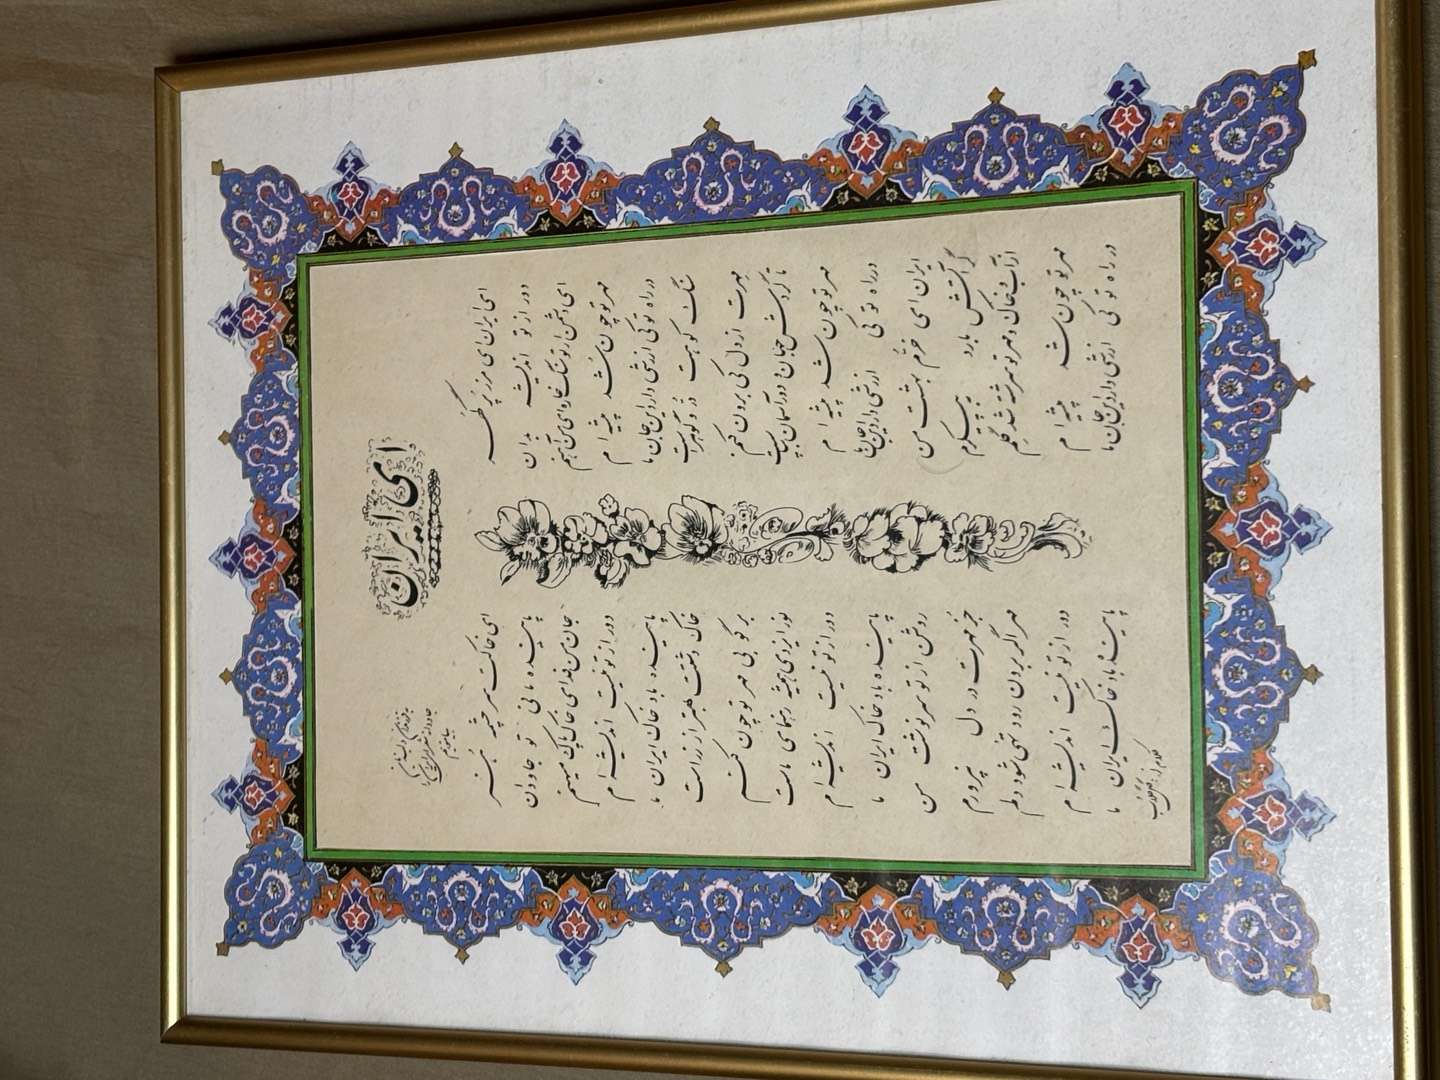 ای ایران
ای ایران ای مرز پر گهر    ای خاکت سرچشمه هنر
دور از تو اندیشه بدان    پاینده مانی تو جاودان
ای دشمن ار تو سنگ خاره‌ای من آهنم    جان من فدای خاک پاک میهنم
مهر تو چون شد پیشه‌ام    دور از تو نیست اندیشه‌ام
در راه تو کی ارزشی دارد این جان ما    پاینده باد خاک ایران ما
سنگ کوهت در و گوهر است    خاک دشتت بهتر از زر است
مهرت از دل کی برون کنم    بر گو بی مهر تو چون کنم
تا گردش جهان و دور آسمان بپاست    نور ایزدی همیشه رهنمای ماست
مهر تو چون شد پیشه‌ام    دور از تو نیست اندیشه‌ام
در راه تو کی ارزشی دارد این جان ما    پاینده باد خاک ایران ما
ایران ای خرّم بهشت من    روشن از تو سرنوشت من
گر آتش بارد به پیکرم    جز مهرت در دل نپرورم
از آب و خاک و مهر تو سرشته شد گلم    مهر اگر برون رود تهی شود دلم
مهر تو چون شد پیشه‌ام    دور از تو نیست اندیشه‌ام
در راه تو کی ارزشی دارد این جان ما    پاینده باد خاک ایران ما
کلام از: گل گلاب